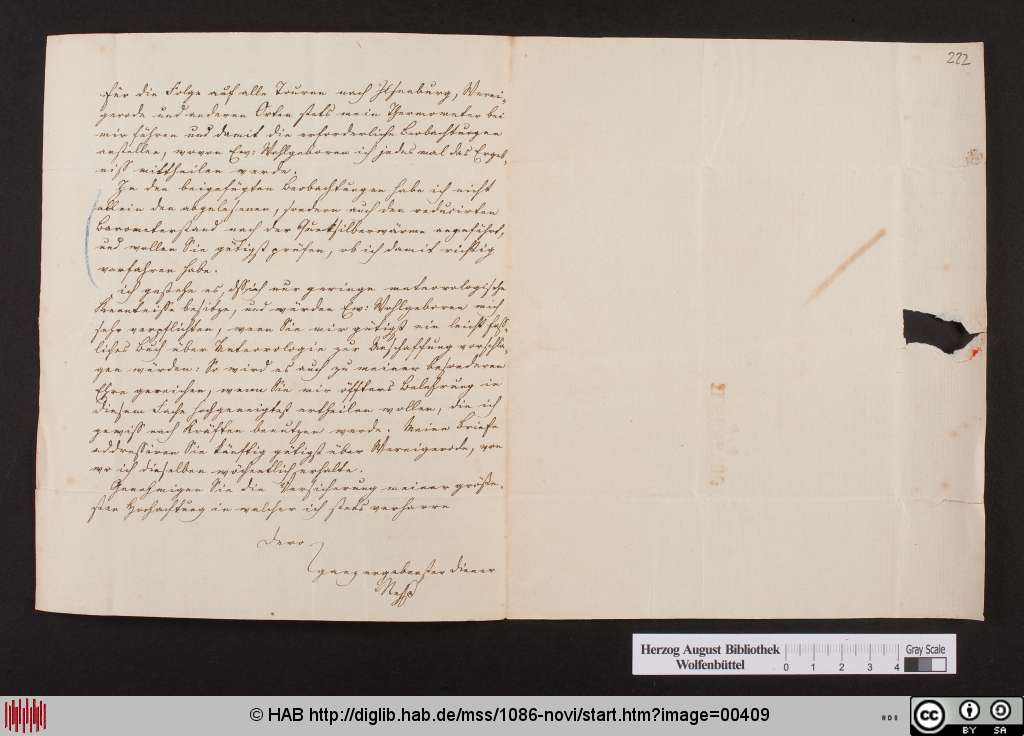 222
für die Folge auf alle Touren nach Ilsenburg, Werni-
gerode und anderen Orten stets mein Thermometer bei
mir führen und damit die erforderlichen Beobachtungen
anstellen, wovon Ew: Wohlgeboren ich jedes mal das Ergeb-
niss mittheilen werde.
In den beigefügten Beobachtungen habe ich nicht
allein den abgelesenen, sondern auch den reducirten
Barometerstand nach der Quecksilberwärme angeführt,
und wollen Sie gütigst prüfen, ob ich damit richtig
verfahren habe.
ich gestehe es, dss ich nur geringe meteorologische
Kenntnisse besitze, und würden Ew: Wohlgeboren mich
sehr verpflichten, wenn Sie mir gütigst ein leicht fass-
liches Buch über Meteorologie zur Anschaffung vorschla-
gen würden: So wird es auch zu meiner besonderen
Ehre gereichen, wenn Sie mir öffters Belehrung in
diesem Fache hochgeneigtest ertheilen wollen, die ich
gewiss nach Kräften benutzen werde. Meine Briefe
addressiren Sie künftig gütigst über Wernigerode, von
wo ich dieselben wöchentlich erhalte.
Genehmigen Sie die Versicherung meiner größe-
sten Hochachtung in welcher ich stets verharre
Dero
ganz ergebenster Diener
Nehse
Herzog August Bibliothek
Wolfenbüttel
0 1 2 3 4
Gray Scale
© HAB http://diglib.hab.de/mss/1086-novi/start.htm?image=00409
cc BY SA